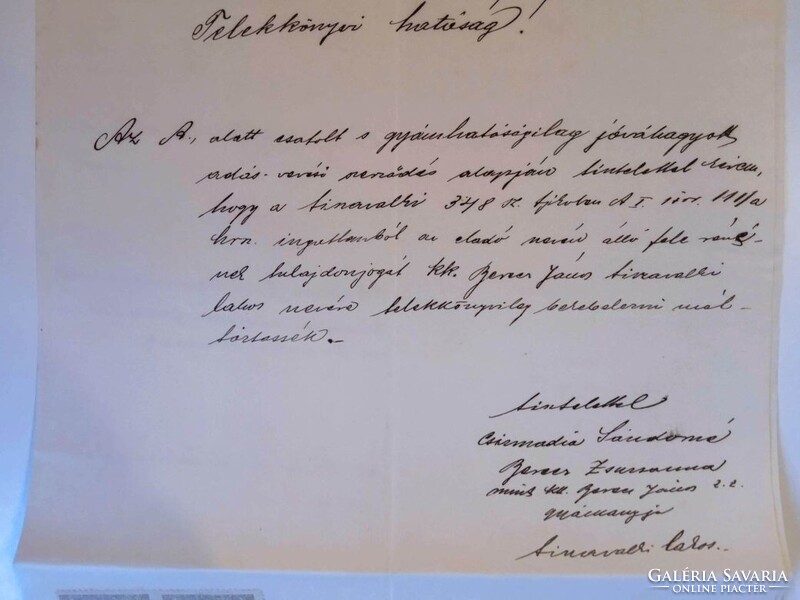 Telekkönyvi hatóság!
Az A., alatt csatolt s gyámhatóságilag jóváhagyott
adás-vevési szerződés alapján tisztelettel kérem,
hogy a tiszavalki 348 sz. tjkvben A I sor. 111/a
hrsz. ingatlanból az eladó nevén álló fele részé-
nek tulajdonjogát kk. Bercz János tiszavalki
lakos nevére telekkönyvileg bekebelezni mél-
tóztassék.-
tisztelettel
Csizmadia Sándorné
Bercz Zsuzsanna
mint kk. Bercz János
gyámanyja
tiszavalki lakos.
GALÉRIA SAVARIA
ONLINE PIACTÉR